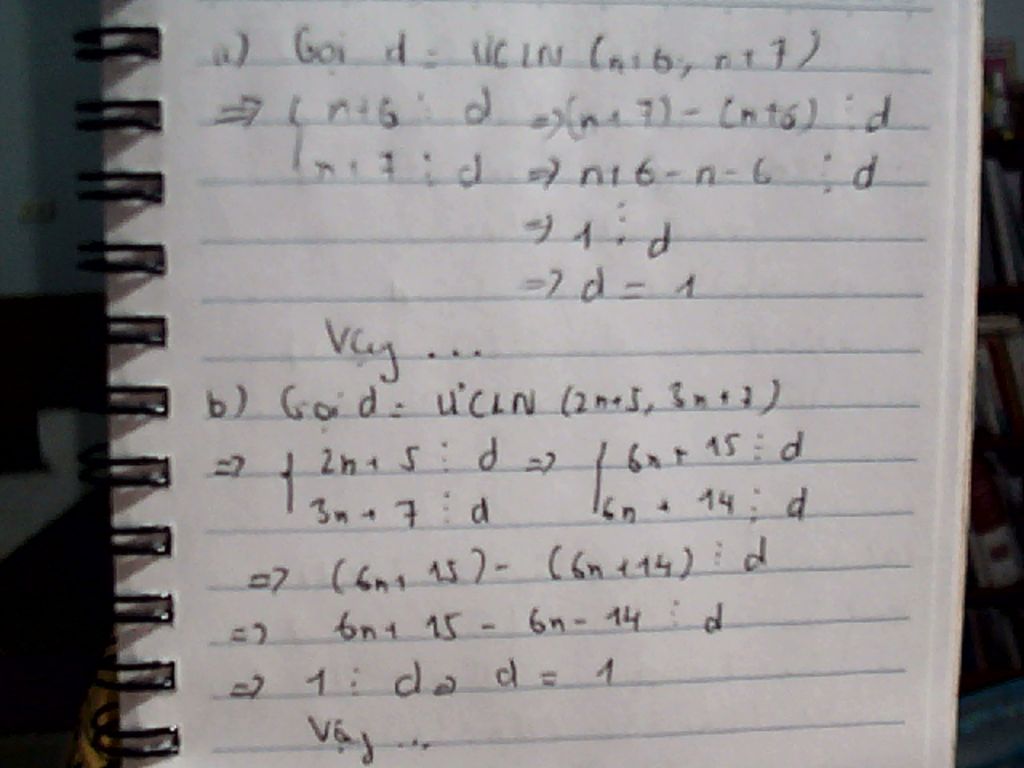 a) Gọi d = ƯCLN (n+6, n+7)
=> { n+6 ⋮ d => (n+7) - (n+6) ⋮ d
n+7 ⋮ d => n+6-n-6 ⋮ d
=> 1 ⋮ d
=> d = 1
Vậy ...
b) Gọi d = ƯCLN (2n+5, 3n+7)
=> { 2n + 5 ⋮ d => { 6n + 15 ⋮ d
3n + 7 ⋮ d 6n + 14 ⋮ d
=> (6n + 15) - (6n + 14) ⋮ d
=> 6n + 15 - 6n - 14 ⋮ d
=> 1 ⋮ d => d = 1
Vậy ...